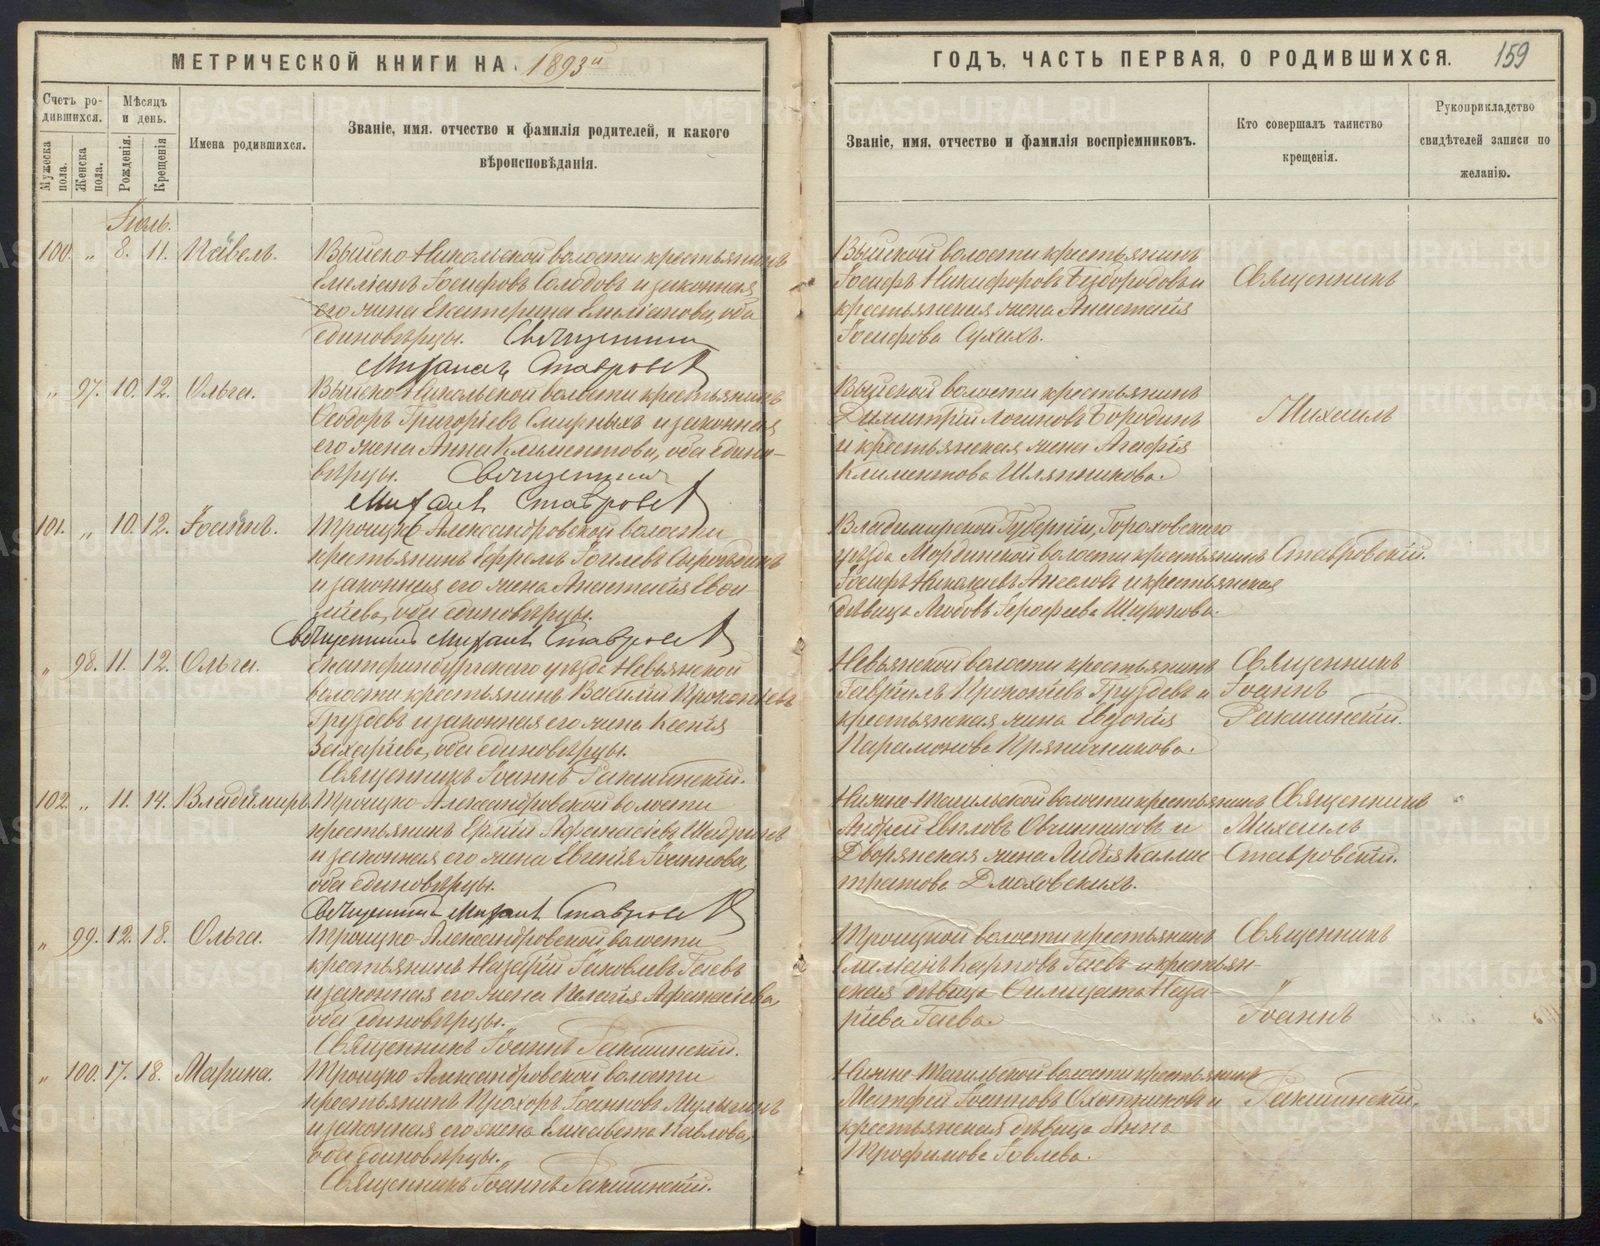 МЕТРИЧЕСКОЙ КНИГИ НА 1893й
Счетъ родившихся.
Мѣсяцъ и день.
Имена родившихся.
Званіе, имя, отчество и фамилія родителей, и какого
вѣроисповѣданія.
Мужеска пола.
Женска пола.
Рожденія.
Крещенія
Іюль.
100. " 8. 11. Павелъ. Выйско-Никольской волости крестьянинъ
Емеліанъ Іосифовъ Солодовъ и законная
его жена Екатерина Емеліанова, оба
единовѣрцы. Священникъ
Михаилъ Ставровскій
" 97. 10. 12. Ольга. Выйско-Никольской волости крестьянинъ
Ѳеодоръ Григоріевъ Смирныхъ и законная
его жена Анна Климентова, оба едино-
вѣрцы. Священникъ
Михаилъ Ставровскій
101. " 10. 12. Іоаннъ. Троицко-Александровской волости
крестьянинъ Ефремъ Іовлевъ и законная его жена Анастасія
оба единовѣрцы.
Священникъ Михаилъ Ставровскій
" 98. 11. 12. Ольга. Екатеринбургскаго уѣзда Невьянской
волости крестьянинъ Василій Прокопіевъ
Груздевъ и законная его жена Ксенія
Захаріева, оба единовѣрцы.
Священникъ Іоаннъ Ракшинскій.
102. " 11. 14. Владиміръ. Троицко-Александровской волости
крестьянинъ Ермій Афанасіевъ Шадринъ
и законная его жена Евгенія Іоаннова,
оба единовѣрцы.
Священникъ Михаилъ Ставровскій
" 99. 12. 18. Ольга. Троицко-Александровской волости
крестьянинъ Назарій Іаковлевъ Гаевъ
и законная его жена Пелагія Афанасіева,
оба единовѣрцы.
Священникъ Іоаннъ Ракшинскій.
" 100. 17. 18. Марина. Троицко-Александровской волости
крестьянинъ Прохоръ Іоанновъ Мулыгинъ
и законная его жена Елисавета Павлова,
оба единовѣрцы.
Священникъ Іоаннъ Ракшинскій.
ГОДЪ, ЧАСТЬ ПЕРВАЯ, О РОДИВШИХСЯ. 159
Званіе, имя, отчество и фамилія воспріемниковъ.
Кто совершалъ таинство
крещенія.
Рукоприкладство
свидѣтелей записи по
желанію.
Выйской волости крестьянинъ
Іосифъ Никифоровъ Безбородовъ и
крестьянская жена Анастасія
Іосифова Сухихъ.
Священникъ
Выйской волости крестьянинъ
Димитрій Логиновъ Бородинъ
и крестьянская жена Агафія
Климентова Шляпникова.
Михаилъ
Владимирской Губерніи, Гороховскаго
уѣзда Мордвинской волости крестьянинъ
Іосифъ и крестьянская
дѣвица Любовь Іерофеева Широкова.
Ставровскій.
Невьянской волости крестьянинъ
Гавріилъ Прокопіевъ Груздевъ и
крестьянская жена Евдокія
Парамонова Пряничникова.
Священникъ
Іоаннъ
Ракшинскій.
Нижне-Тагильской волости крестьянинъ
Андрей Евпловъ Овчинниковъ и
Дворянская жена Лидія Калли-
стратова Дмоховскихъ.
Священникъ
Михаилъ
Ставровскій.
Троицкой волости крестьянинъ
Емеліанъ Карповъ Гаевъ и крестьян-
ская дѣвица Наза-
ріева Гаева.
Священникъ
"
Іоаннъ
Нижне-Тагильской волости крестьянинъ
Матфей Іоанновъ Охотниковъ и
крестьянская дѣвица Анна
Трофимова Іовлева.
Ракшинскій.
METRIKI.GASO-URAL.RU